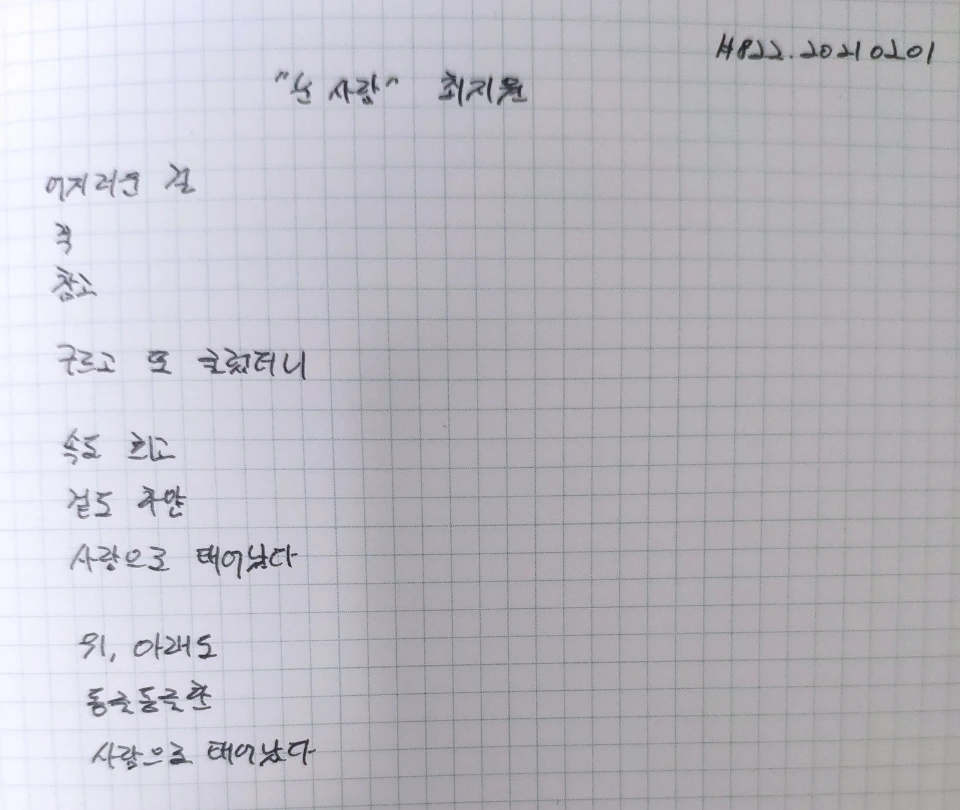 #822.20210201
"눈 사람" 최지원
어지러운 걸
꾹
참고
구르고 또 굴렀더니
속도 희고
겉도 하얀
사람으로 태어났다
위, 아래도
동글동글한
사람으로 태어났다